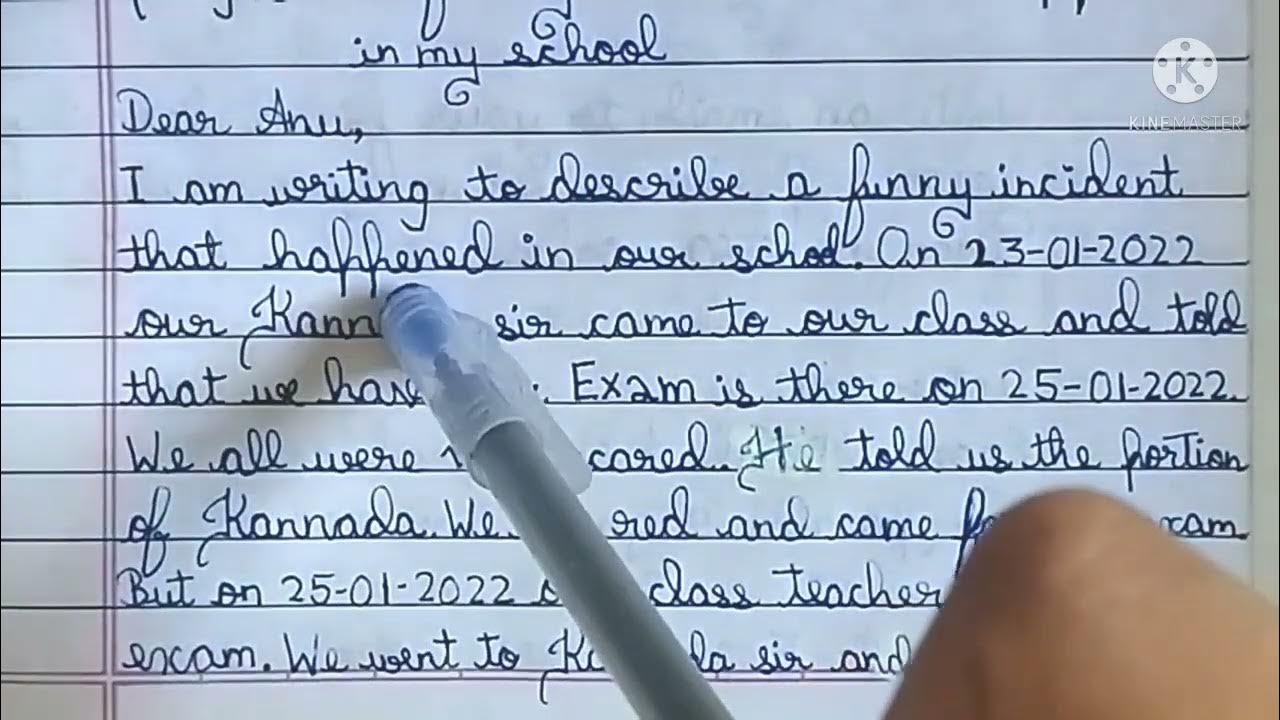 in my school
Dear Anu,
I am writing to describe a funny incident
that happened in our school. On 23-01-2022
our sir came to our class and told
that we Exam is there on 25-01-2022.
We all were He told us the portion
of Kannada. We and came
But on 25-01-2022 class teacher
exam. We went to sir and
KINEMASTER